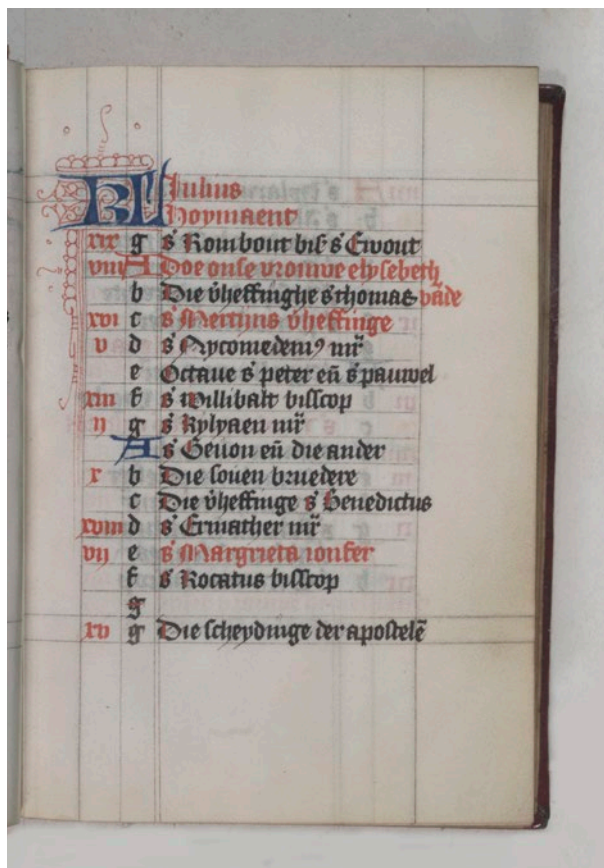 KL Julius
hoymaent
xix g s Rombout bis s Ewout
viii A Doe onse vromve elysebeth
b Die v̄heffinghe s thomas vāde
xvi c s Mertijns v̄heffinge
v d s Nycomedemꝰ mr̄
e Octave s peter eñ s pauwel
xiii f s Willibalt bisscop
ij g s Kylyaen mr̄
A s Genon eñ die ander
x b Die soven bruedere
c Die v̄heffinge s Benedictus
xviii d s Ermather mr̄
vij e s Margrieta ionfer
f s Rocatus bisscop
g
xv g Die scheydinge der apostelē